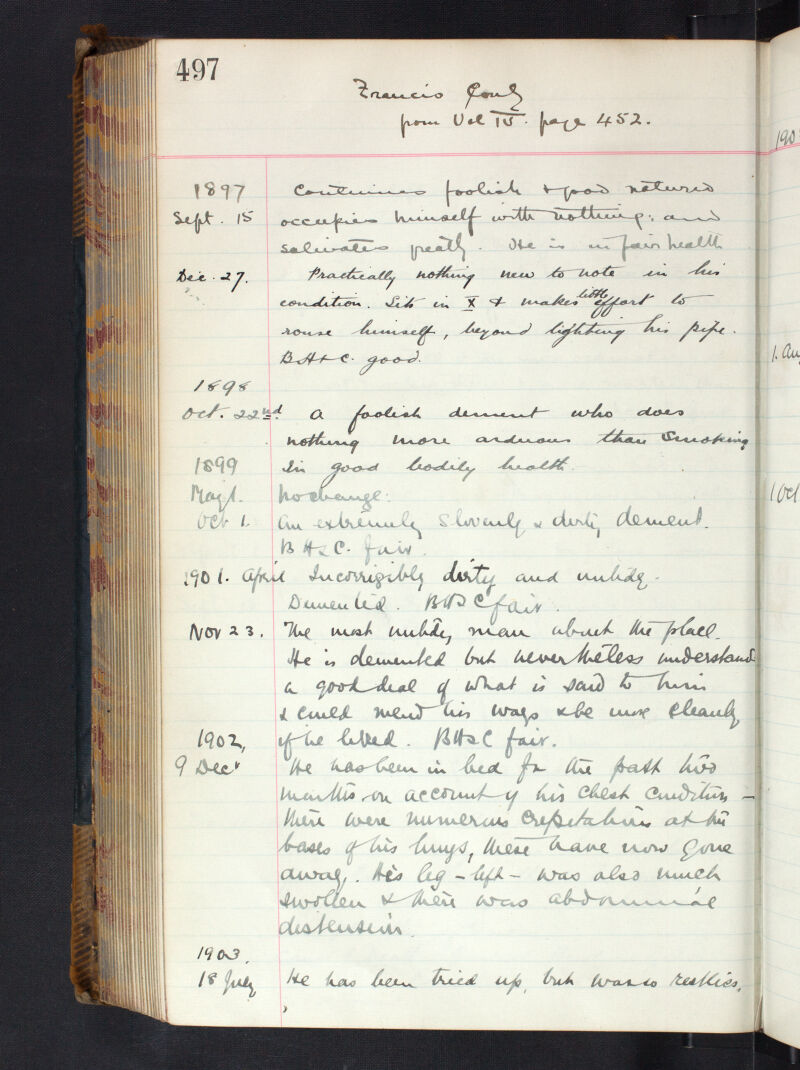 497
Francis
from Vol IV. page 452.
1897 Continues foolish & good natured
Sept. 15 occupies himself with nothing: and
salivates greatly. He is in fair health
Dec. 27. Practically nothing new to note in his
condition. Sits in X & makes little effort to
rouse himself, beyond lighting his pipe.
B.H.& C. good.
1898
Oct. 22nd. A foolish dement who does
nothing more arduous than smoking
1899 In good bodily health.
May 1. No change.
Oct 1. An extremely slovenly & dirty dement.
B H & C. fair.
1901. April Incorrigibly dirty and untidy.
Demented. B H & C fair.
Nov 23. The most untidy man about the place.
He is demented but nevertheless understands
a good deal of what is said to him
& could mend his ways & be more cleanly
1902, if he liked. B H & C fair.
9 Decr He has been in bed for the past two
months on account of his chest condition –
there were numerous crepitations at the
bases of his lungs, these have now gone
away. His leg – left – was also much
swollen & there was abdominal
distension.
1903.
18 July He has been tried up, but was so restless,
190
1. Au
1 Oct